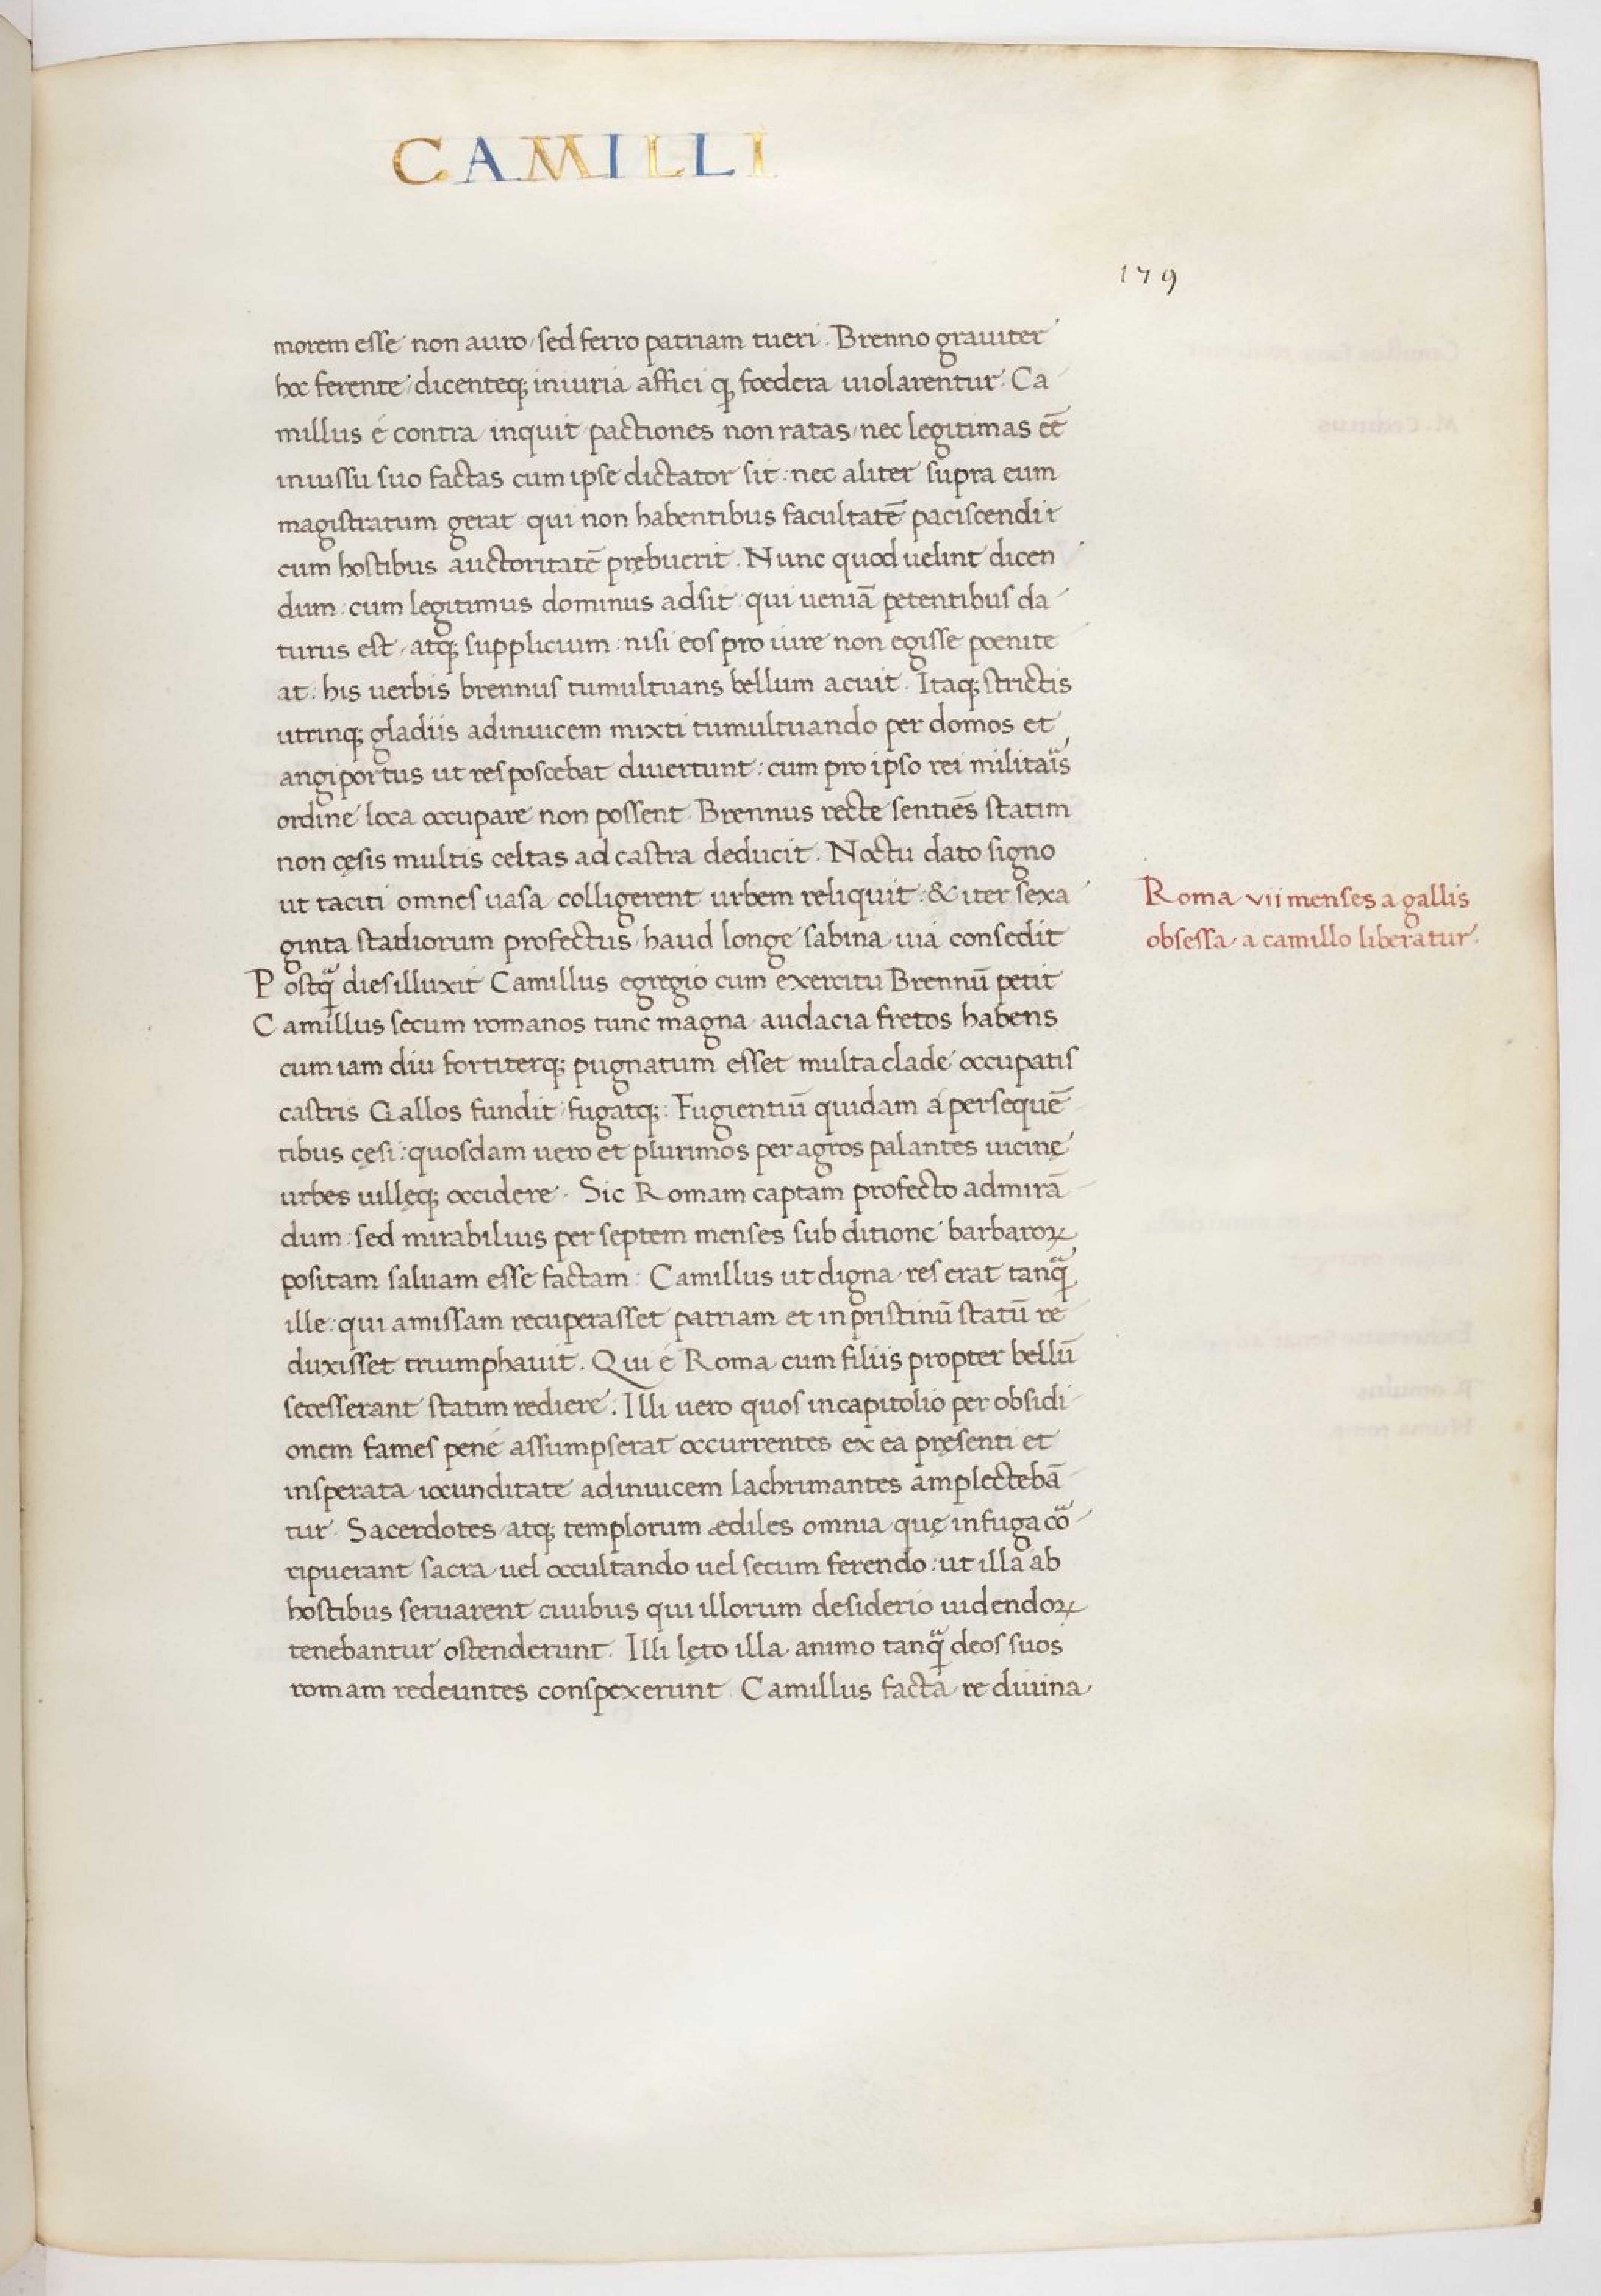 CAMILLI
179
morem esse non auro, sed ferro patriam tueri. Brenno grauiter
hoc ferente, dicenteq; iniuria affici q̧ foedera uiolarentur. Ca
millus é contra inquit pactiones non ratas, nec legitimas eē
iniussu suo factas cum ipse dictator sit: nec aliter supra eum
magistratum gerat qui non habentibus facultatē paciscendi t
cum hostibus auctoritatē prębuerit. Nunc quod uelint dicen
dum: cum legitimus dominus adsit qui ueniā petentibus da
turus est, atq; supplicium: nisi eos pro iure non egisse poenite
at: his uerbis brennus tumultuans bellum acuit. Itaq; strictis
utrinq; gladiis adinuicem mixti tumultuando per domos et
angiportus ut res poscebat diuertunt: cum pro ipso rei militaīs
ordine loca occupare non possent. Brennus recte sentiēs statim
non cęsis multis celtas ad castra deducit. Noctu dato signo
ut taciti omnes uasa colligerent urbem reliquit: & iter sexa
ginta stadiorum profectus, haud longe sabina uia consedit
Postq̃ dies illuxit Camillus egregio cum exercitu Brennū petit
Camillus secum romanos tunc magna audacia fretos habens
cum iam diu fortiterq; pugnatum esset multa clade occupatis
castris Gallos fundit, fugatq;: Fugientiū quidam á persequē
tibus cęsi: quosdam uero et plurimos per agros palantes uicinę
urbes uillęq; occidere. Sic Romam captam profecto admirā
dum: sed mirabilius per septem menses sub ditione barbaroꝝ
positam saluam esse factam: Camillus ut digna res erat tanq̃
ille: qui amissam recuperasset patriam et in pristinū statū re
duxisset triumphauit. Qui é Roma cum filiis propter bellū
secesserant statim rediere. Illi uero quos in capitolio per obsidi
onem fames pene assumpserat occurrentes ex ea pręsenti et
insperata iocunditate adinuicem lachrimantes amplectebā
tur. Sacerdotes atq; templorum ædiles omnia quę in fuga cō
ripuerant sacra uel occultando uel secum ferendo: ut illa ab
hostibus seruarent ciuibus qui illorum desiderio uidendoꝝ
tenebantur ostenderunt. Illi lęto illa animo tanq̃ deos suos
romam redeuntes conspexerunt. Camillus facta re diuina
Roma vii menses a gallis
obsessa a camillo liberatur.